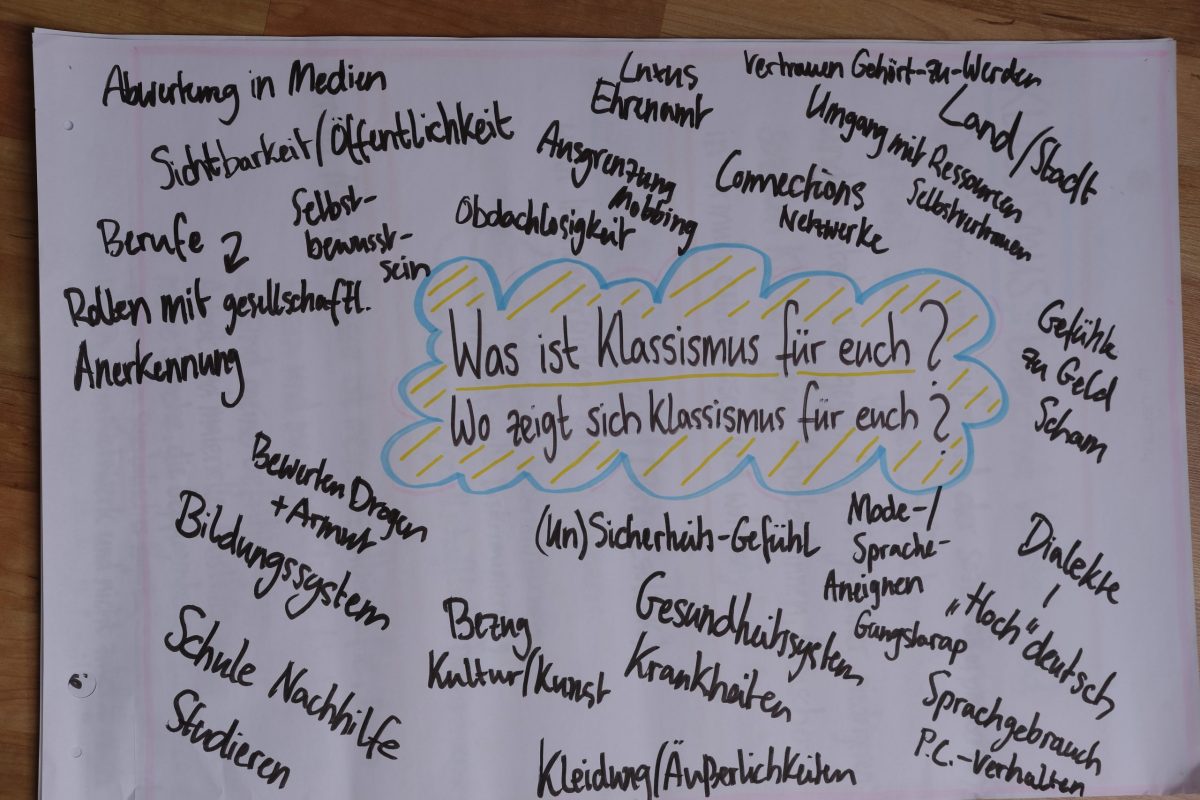 Abwertung in Medien
Sichtbarkeit/Öffentlichkeit
Berufe
Selbst-
bewusst-
sein
Rollen mit gesellschaftl.
Anerkennung
Luxus
Ehrenamt
Ausgrenzung
Mobbing
Obdachlosigkeit
Vertrauen Gehört-zu-Werden
Umgang mit Ressourcen
Selbstvertrauen
Land/Stadt
Connections
Netzwerke
Was ist Klassismus für euch?
Wo zeigt sich Klassismus für euch?
Gefühle
zu Geld
Scham
Bewerten Drogen
+Armut
Bildungssystem
Schule Nachhilfe
Studieren
(Un)Sicherheits-Gefühl
Bezug
Kultur/Kunst
Gesundheitssystem
Krankheiten
Kleidung/Äußerlichkeiten
Mode-/
Sprache-
Aneignen
Gangstarap
Dialekte
/
„Hoch"deutsch
Sprachgebrauch
P.C.-Verhalten